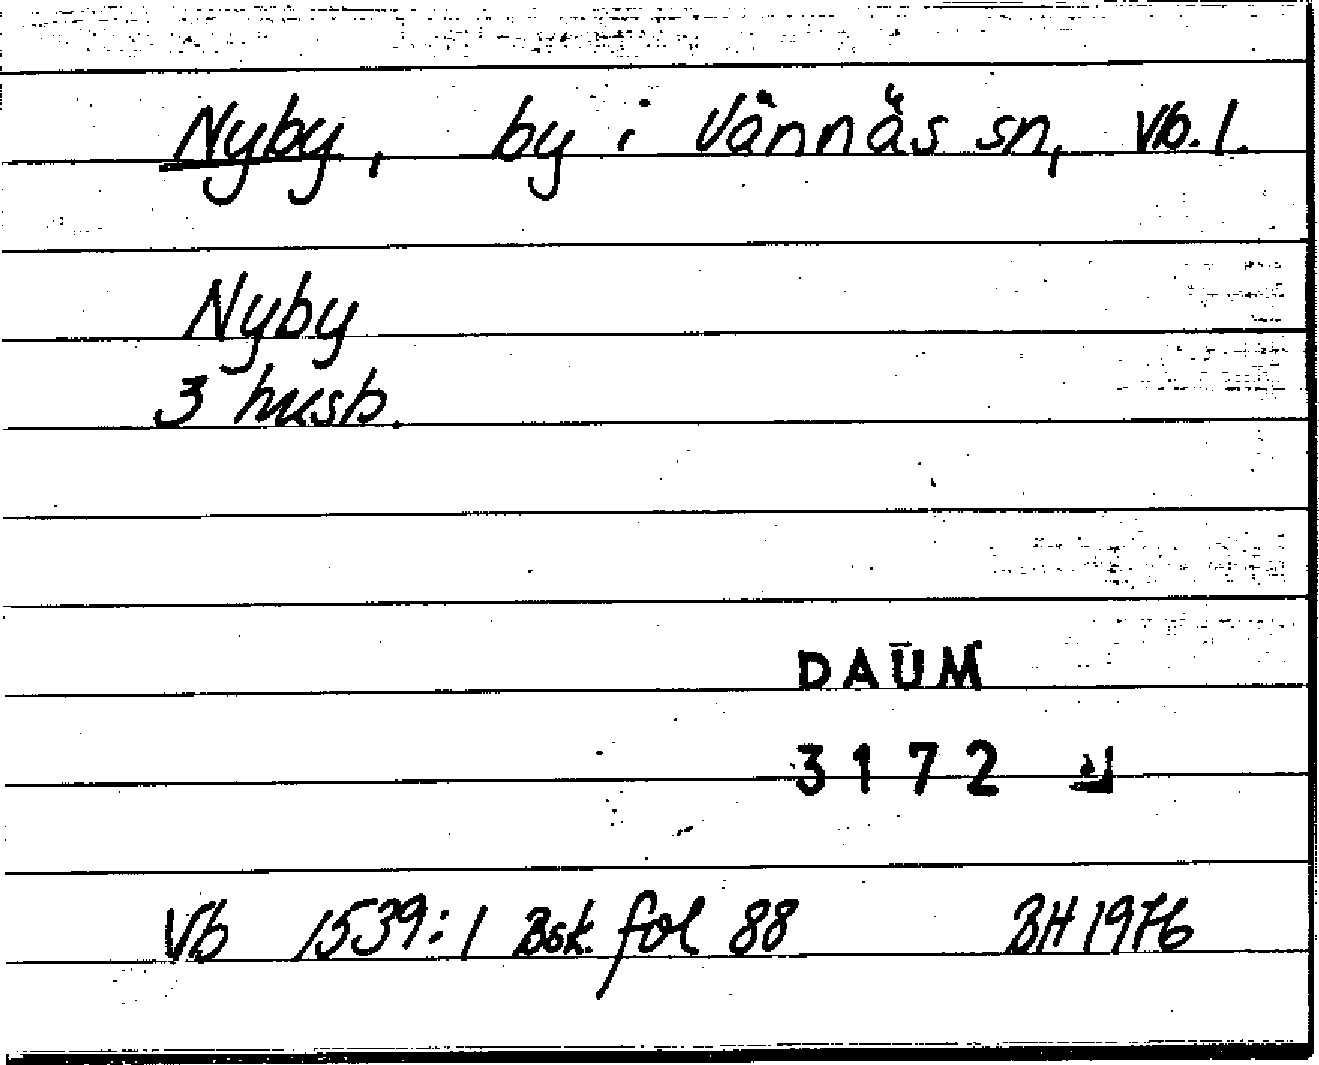 Nyby, by i Vännäs sn, Vb. l.
Nyby
3 husb.
DAUM
3172
Vb 1539:1 Bsk. fol 88 BH 1976